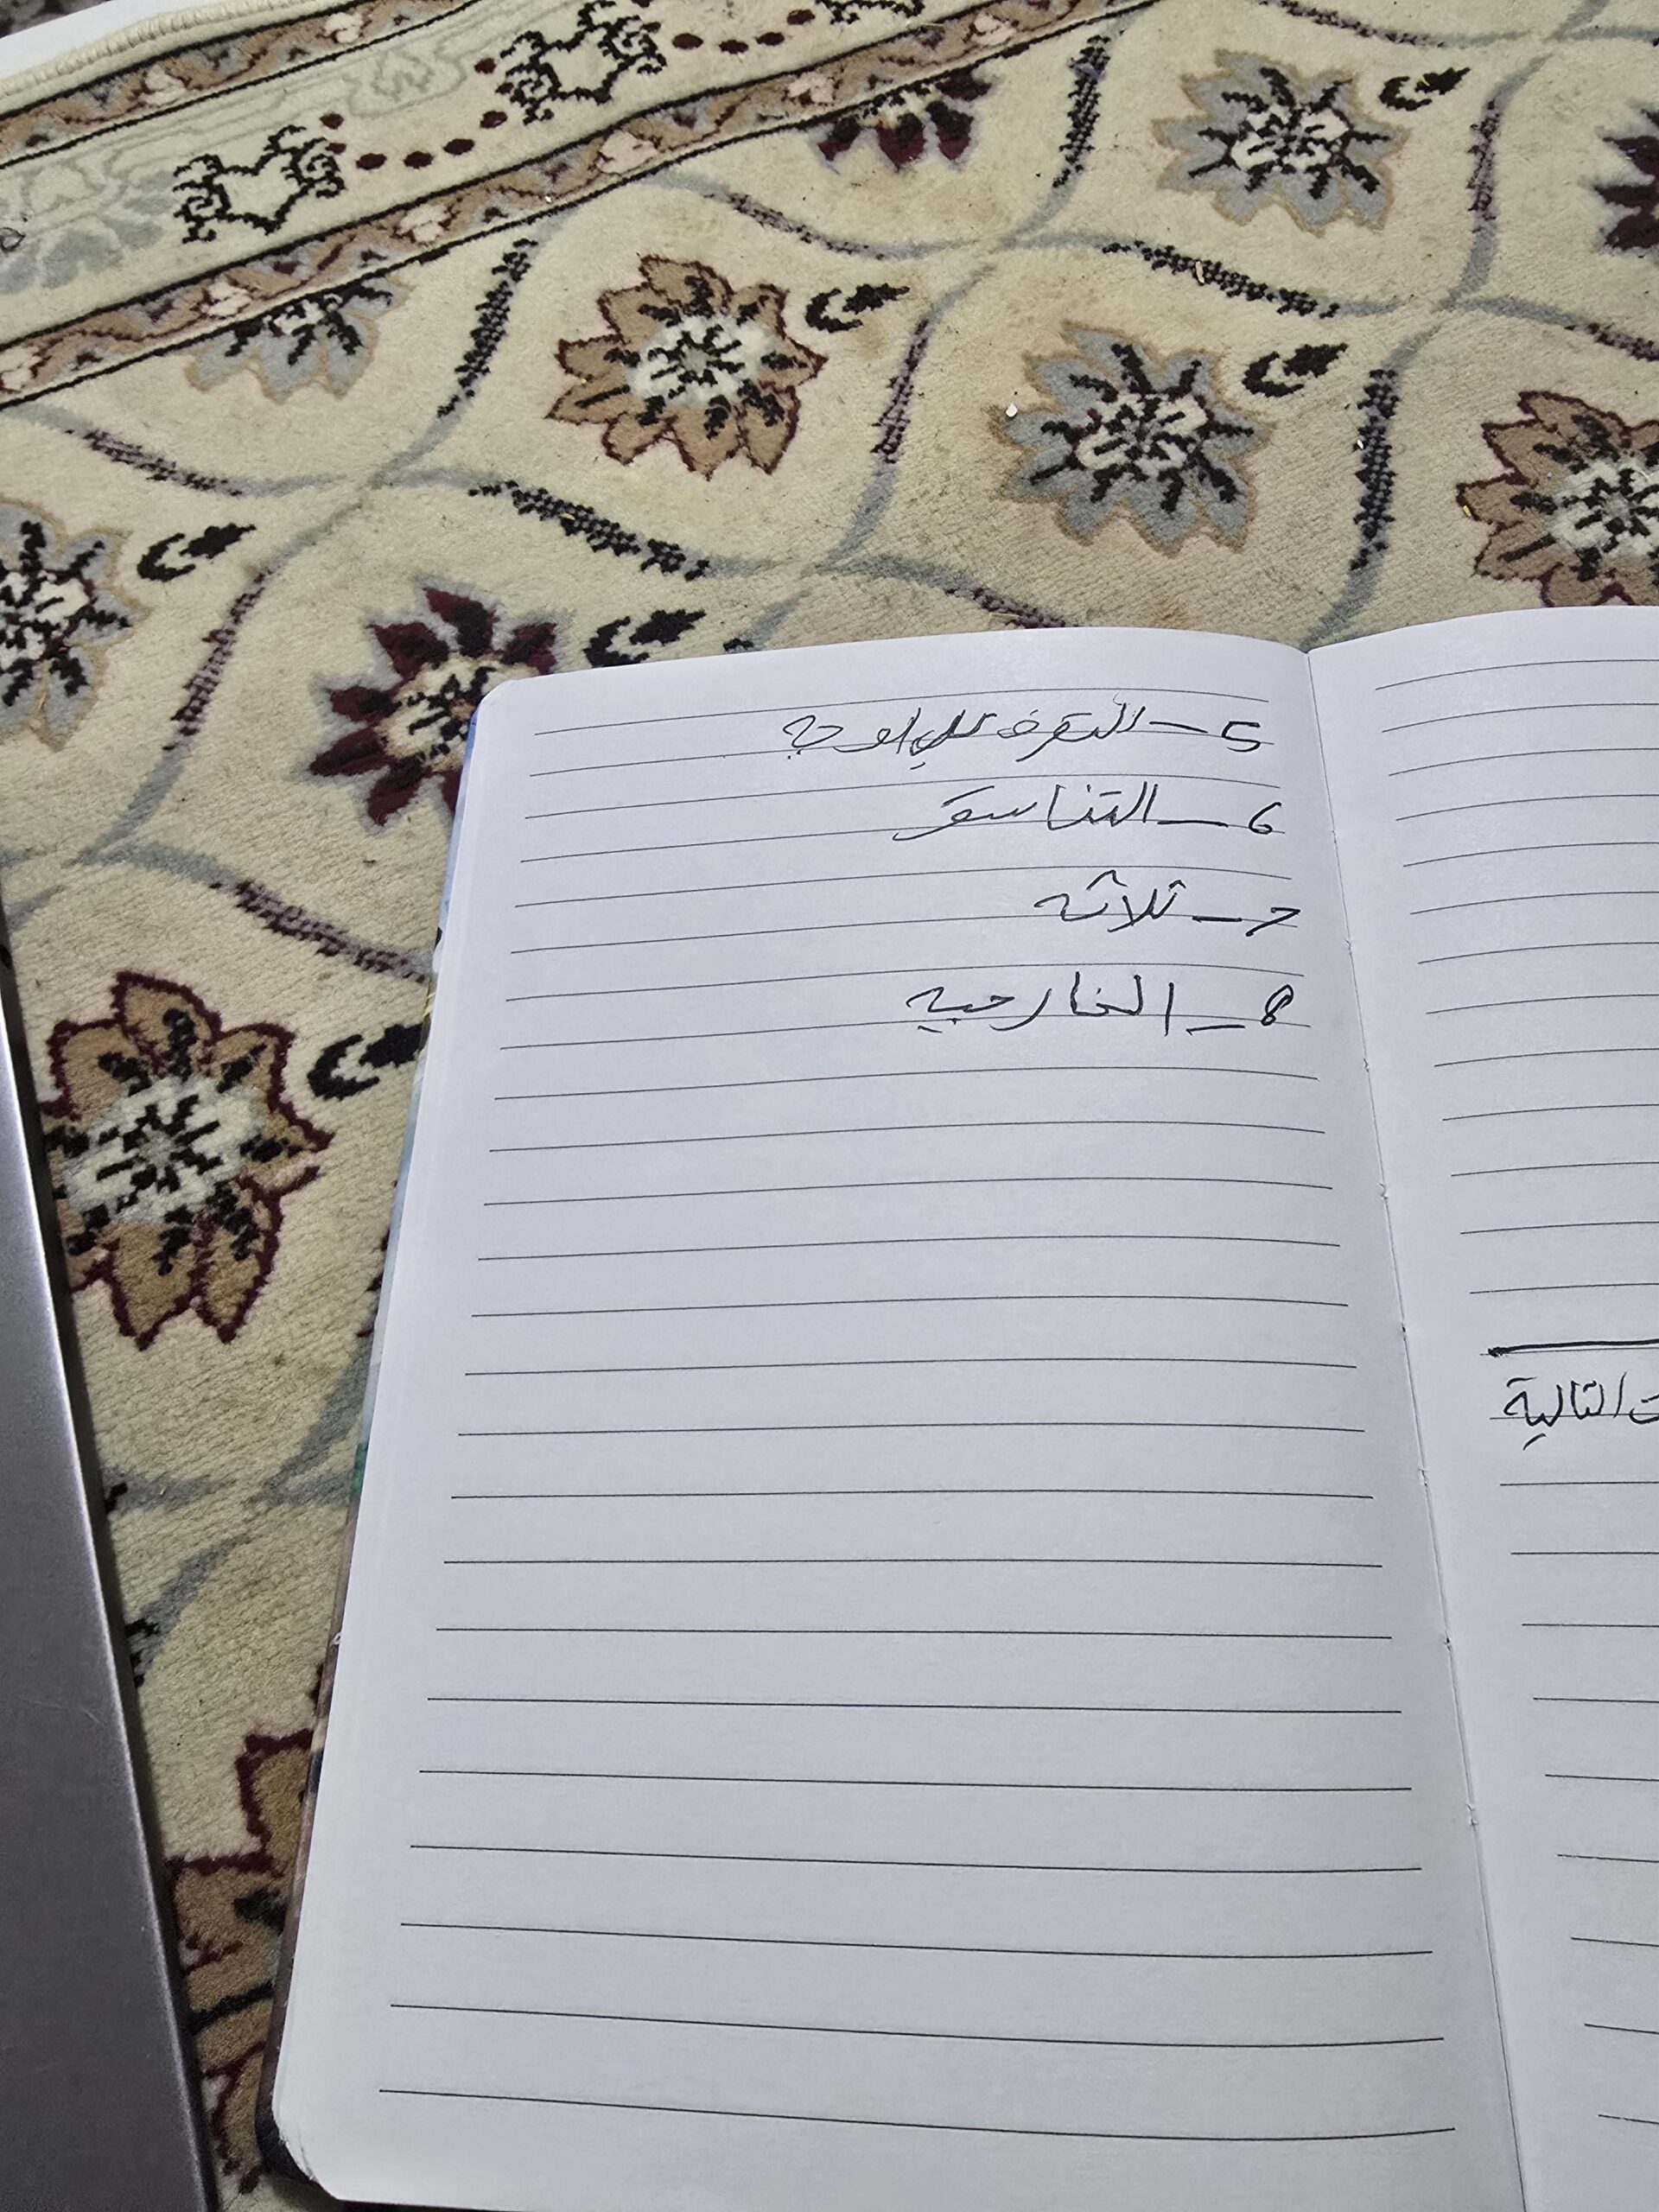 5 - التعرف على اوجه
6 - التناسق
7 - ثلاثه
8 - الخارجيه
التالية